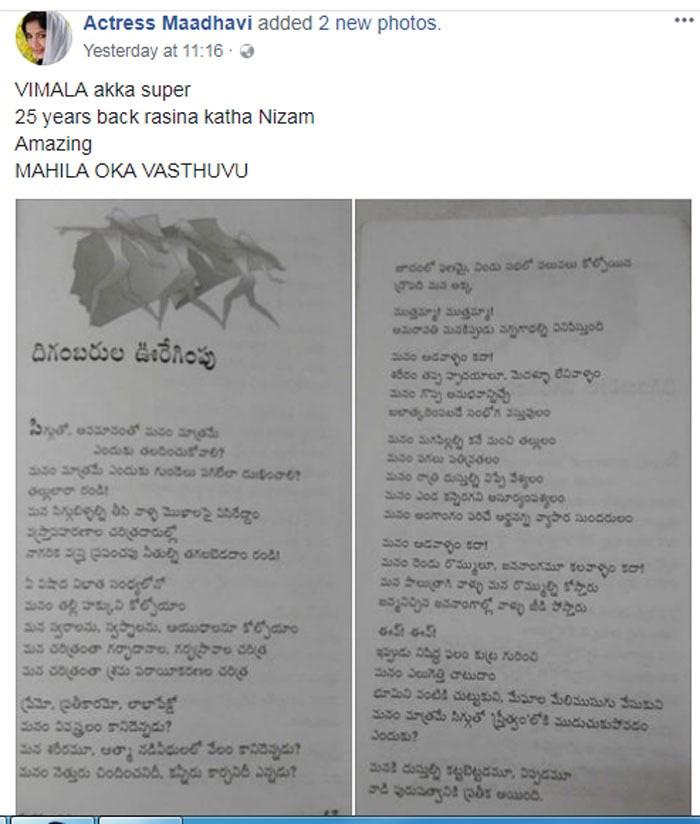 Actress Maadhavi added 2 new photos.
Yesterday at 11:16
VIMALA akka super
25 years back rasina katha Nizam
Amazing
MAHILA OKA VASTHUVU
దిగంబరుల ఊరేగింపు
సిగ్గుతో, అవమానంతో మనం మాత్రమే
ఎందుకు తలదించుకోవాలి?
మనం మాత్రమే ఎందుకు గుండెలు పగిలేలా దుఃఖించాలి?
తల్లులారా రండి!
మన సిగ్గుబిళ్ళల్ని తీసి వాళ్ళ మొఖాలపై విసిరేద్దాం
వస్త్రాపహరణాల చరితదారుల్లో
నాగరిక వస్త్ర ప్రపంచపు నీతుల్ని తగలబెడదాం రండి!
ఏ విషాద విలాత సంధ్యలోనో
మనం తల్లి హక్కుని కోల్పోయాం
మన స్వరాలను, స్వప్నాలను, ఆయుధాలనూ కోల్పోయాం
మన చరితంతా గర్భాదానాల, గర్భస్రావాల చరిత్ర
మన చరితంతా శ్రమ పరాయీకరణల చరిత్ర
ప్రేమో, ప్రతీకారమో, లాభాపేక్షో
మనం వివస్త్రలం కానిదెన్నడు?
మన శరీరమూ, ఆత్మా నడివీధులలో వేలం కానిదెన్నడు?
మనం నెత్తురు చిందించనిదీ, కన్నీరు కార్చనిదీ ఎన్నడు?
జూదంలో ఫణమై, నిండు సభలో వలువలు కోల్పోయిన
ద్రౌపది మన అక్క
ముత్తమ్మా! ముత్తమ్మా!
అమరావతి మనకిప్పుడు నగ్నగాథల్ని వినిపిస్తుంది
మనం ఆడవాళ్ళం కదా!
శరీరం తప్ప హృదయాలూ, మెదళ్ళూ లేనివాళ్ళం
మనం గొప్ప అనుభవాన్నిచ్చే
బలాత్కరింపబడే సంభోగ వస్తువులం
మనం మగపిల్లల్ని కనే మంచి తల్లులం
మనం పగలు పతివ్రతలం
మనం రాత్రి దుస్తుల్ని విప్పే వేశ్యలం
మనం ఎండ కన్నెరగని అసూర్యంపశ్యలం
మనం అంగాంగం పరిచే అర్ధనగ్న వ్యాపార సుందరులం
మనం ఆడవాళ్ళం కదా!
మనం రెండు రొమ్ములూ, జననాంగమూ కలవాళ్ళం కదా!
మన పాలుత్రాగి వాళ్ళు మన రొమ్ముల్ని కోస్తారు
జన్మనిచ్చిన జననాంగాల్లో వాళ్ళు జీడి పోస్తారు
ఈవ్! ఈవ్!
ఇప్పుడు నిషిద్ధ ఫలం కుట్ర గురించి
మనం ఎలుగెత్తి చాటుదాం
భూమిని వంటికి చుట్టుకుని, మేఘాల మేలిముసుగు వేసుకుని
మనం మాత్రమే సిగ్గుతో 'స్త్రీత్వం'లోకి ముడుచుకుపోవడం
ఎందుకు?
మనకి దుస్తుల్ని కట్టబెట్టడమూ, విప్పడమూ
వాడి పురుషత్వానికి ప్రతీక అయింది.